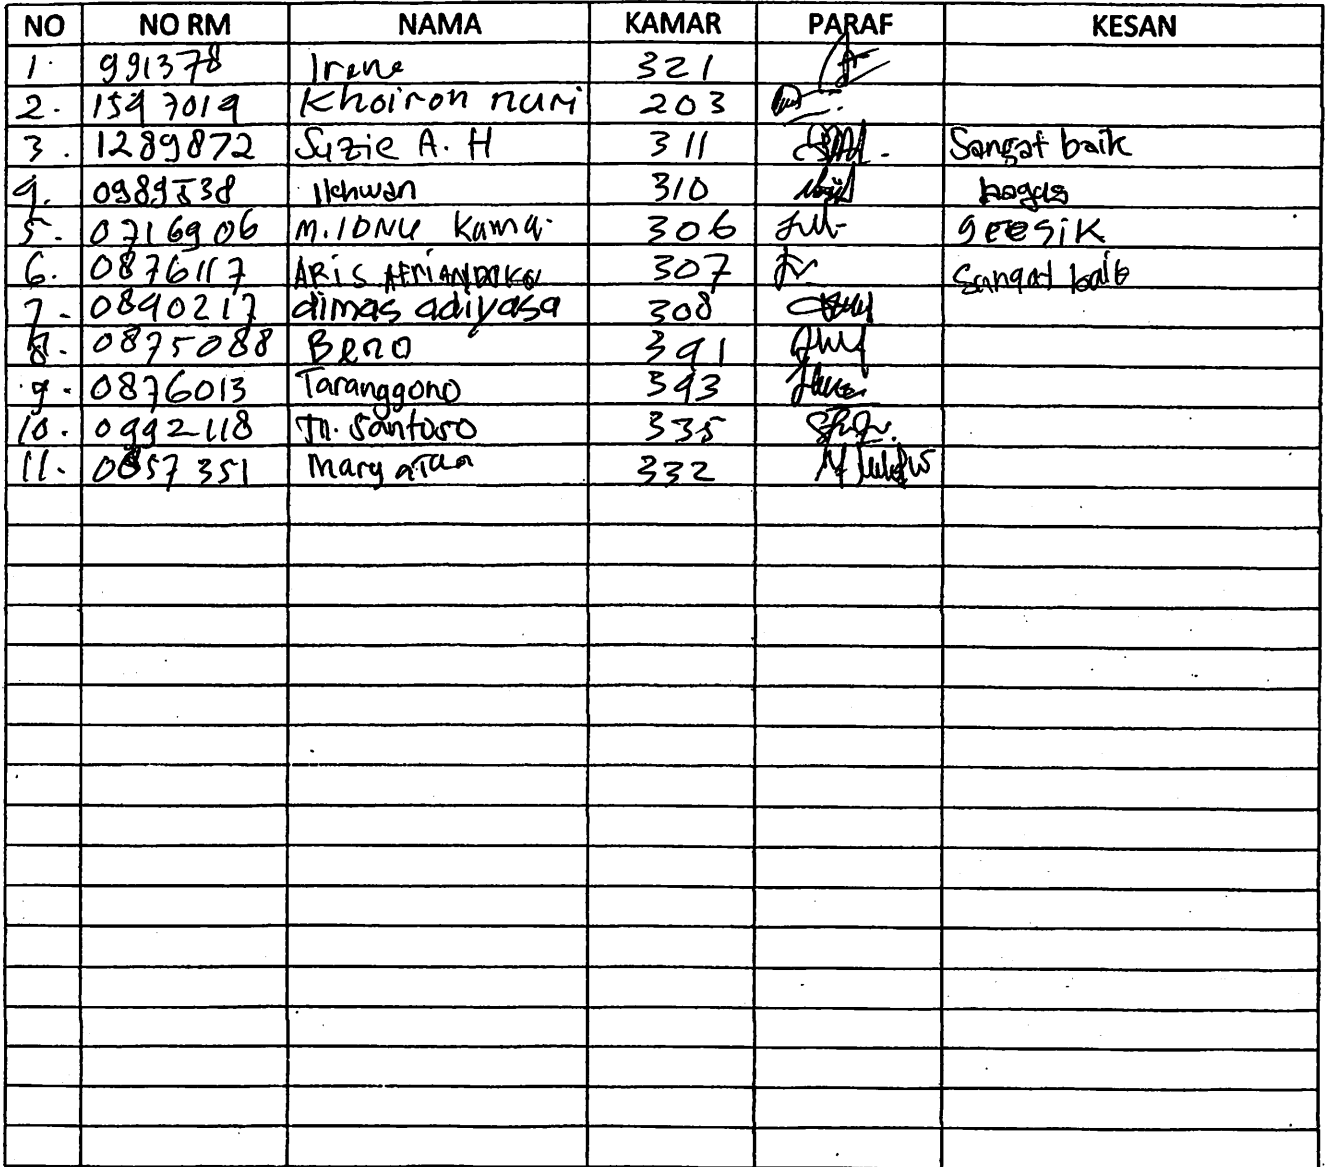 NO NO RM NAMA KAMAR PARAF KESAN
1. 991378 Irene 321
2. 1597019 Khoiron nuri 203
3. 1289872 Suzie A. H 311 Sangat baik
4. 0989538 Ikhwan 310 bagus
5. 0716906 M. IDNU Kama. 306 geesik
6. 0876117 ARIS 307 Sangat baik
7. 0890217 dimas adiyasa 308
8. 0875088 Beno 391
9. 0876013 Taranggono 393
10. 0992118 Tn. Santoso 335
11. 0857351 332